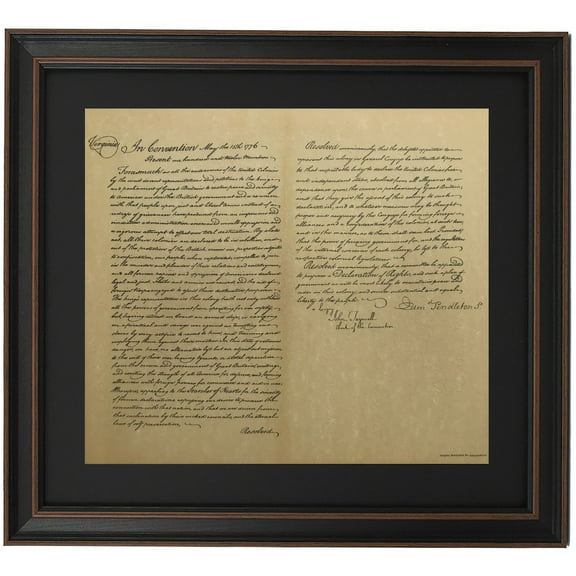 Virginia
In Convention May the 15th 1776
Present one hundred and twelve Members
Forasmuch as all the endeavours of the United Colonies
by the most decent representations and petitions to the king
and parliament of Great Britain to restore peace and security
to America under the British government and a reunion
with that people upon just and liberal terms instead of a
redress of grievances have produced from an imperious and
vindictive administration increased insult oppression and
a vigorous attempt to effect our total destruction. By a late
act, all these colonies are declared to be in rebellion, and
out of the protection of the British crown our properties subjected
to confiscation, our people, when captivated, compelled to join
in the murder and plunder of their relations and countrymen
and all former rapine and oppression of Americans declared
legal and just. Fleets and armies are raised, and the aid of
foreign troops engaged to assist these destructive purposes.
The kings representative in this colony hath not only withheld
all the powers of government from operating for our safety,
but, having retired on board an armed ship, is carrying
on a piratical and savage war against us tempting our
slaves by every artifice to resort to him, and training and
employing them against their masters. In this state of extreme
danger, we have no alternative left but an abject submission
to the will of those overbearing tyrants, or a total separation
from the crown and government of Great Britain, uniting
and exerting the strength of all America for defence, and forming
alliances with foreign powers for commerce and aid in war.
Wherefore, appealing to the Searcher of Hearts for the sincerity
of former declarations, expressing our desire to preserve the
connection with that nation, and that we are driven from
that inclination by their wicked councils, and the eternal
laws of self-preservation,
Resolved
Resolved unanimously, that the delegates appointed to
represent this colony in General Congress be instructed to propose
to that respectable body to declare the United Colonies free
and independent states, absolved from all allegiance to, or
dependence upon the crown or parliament of Great Britain,
and that they give the assent of this colony to such
declaration, and to whatever measures may be thought
proper and necessary by the Congress for forming foreign
alliances and a confederation of the colonies, at such time,
and in the manner, as to them shall seem best: Provided,
that the power of forming government for, and the regulations
of the internal concerns of each colony, be left to the
respective colonial legislatures.
Resolved unanimously, that a committee be appointed
to prepare a Declaration of Rights, and such a plan of
government as will be most likely to maintain peace and
order in this colony, and secure substantial and equal
liberty to the people.
Edm Pendleton P.
Clerk of the Convention